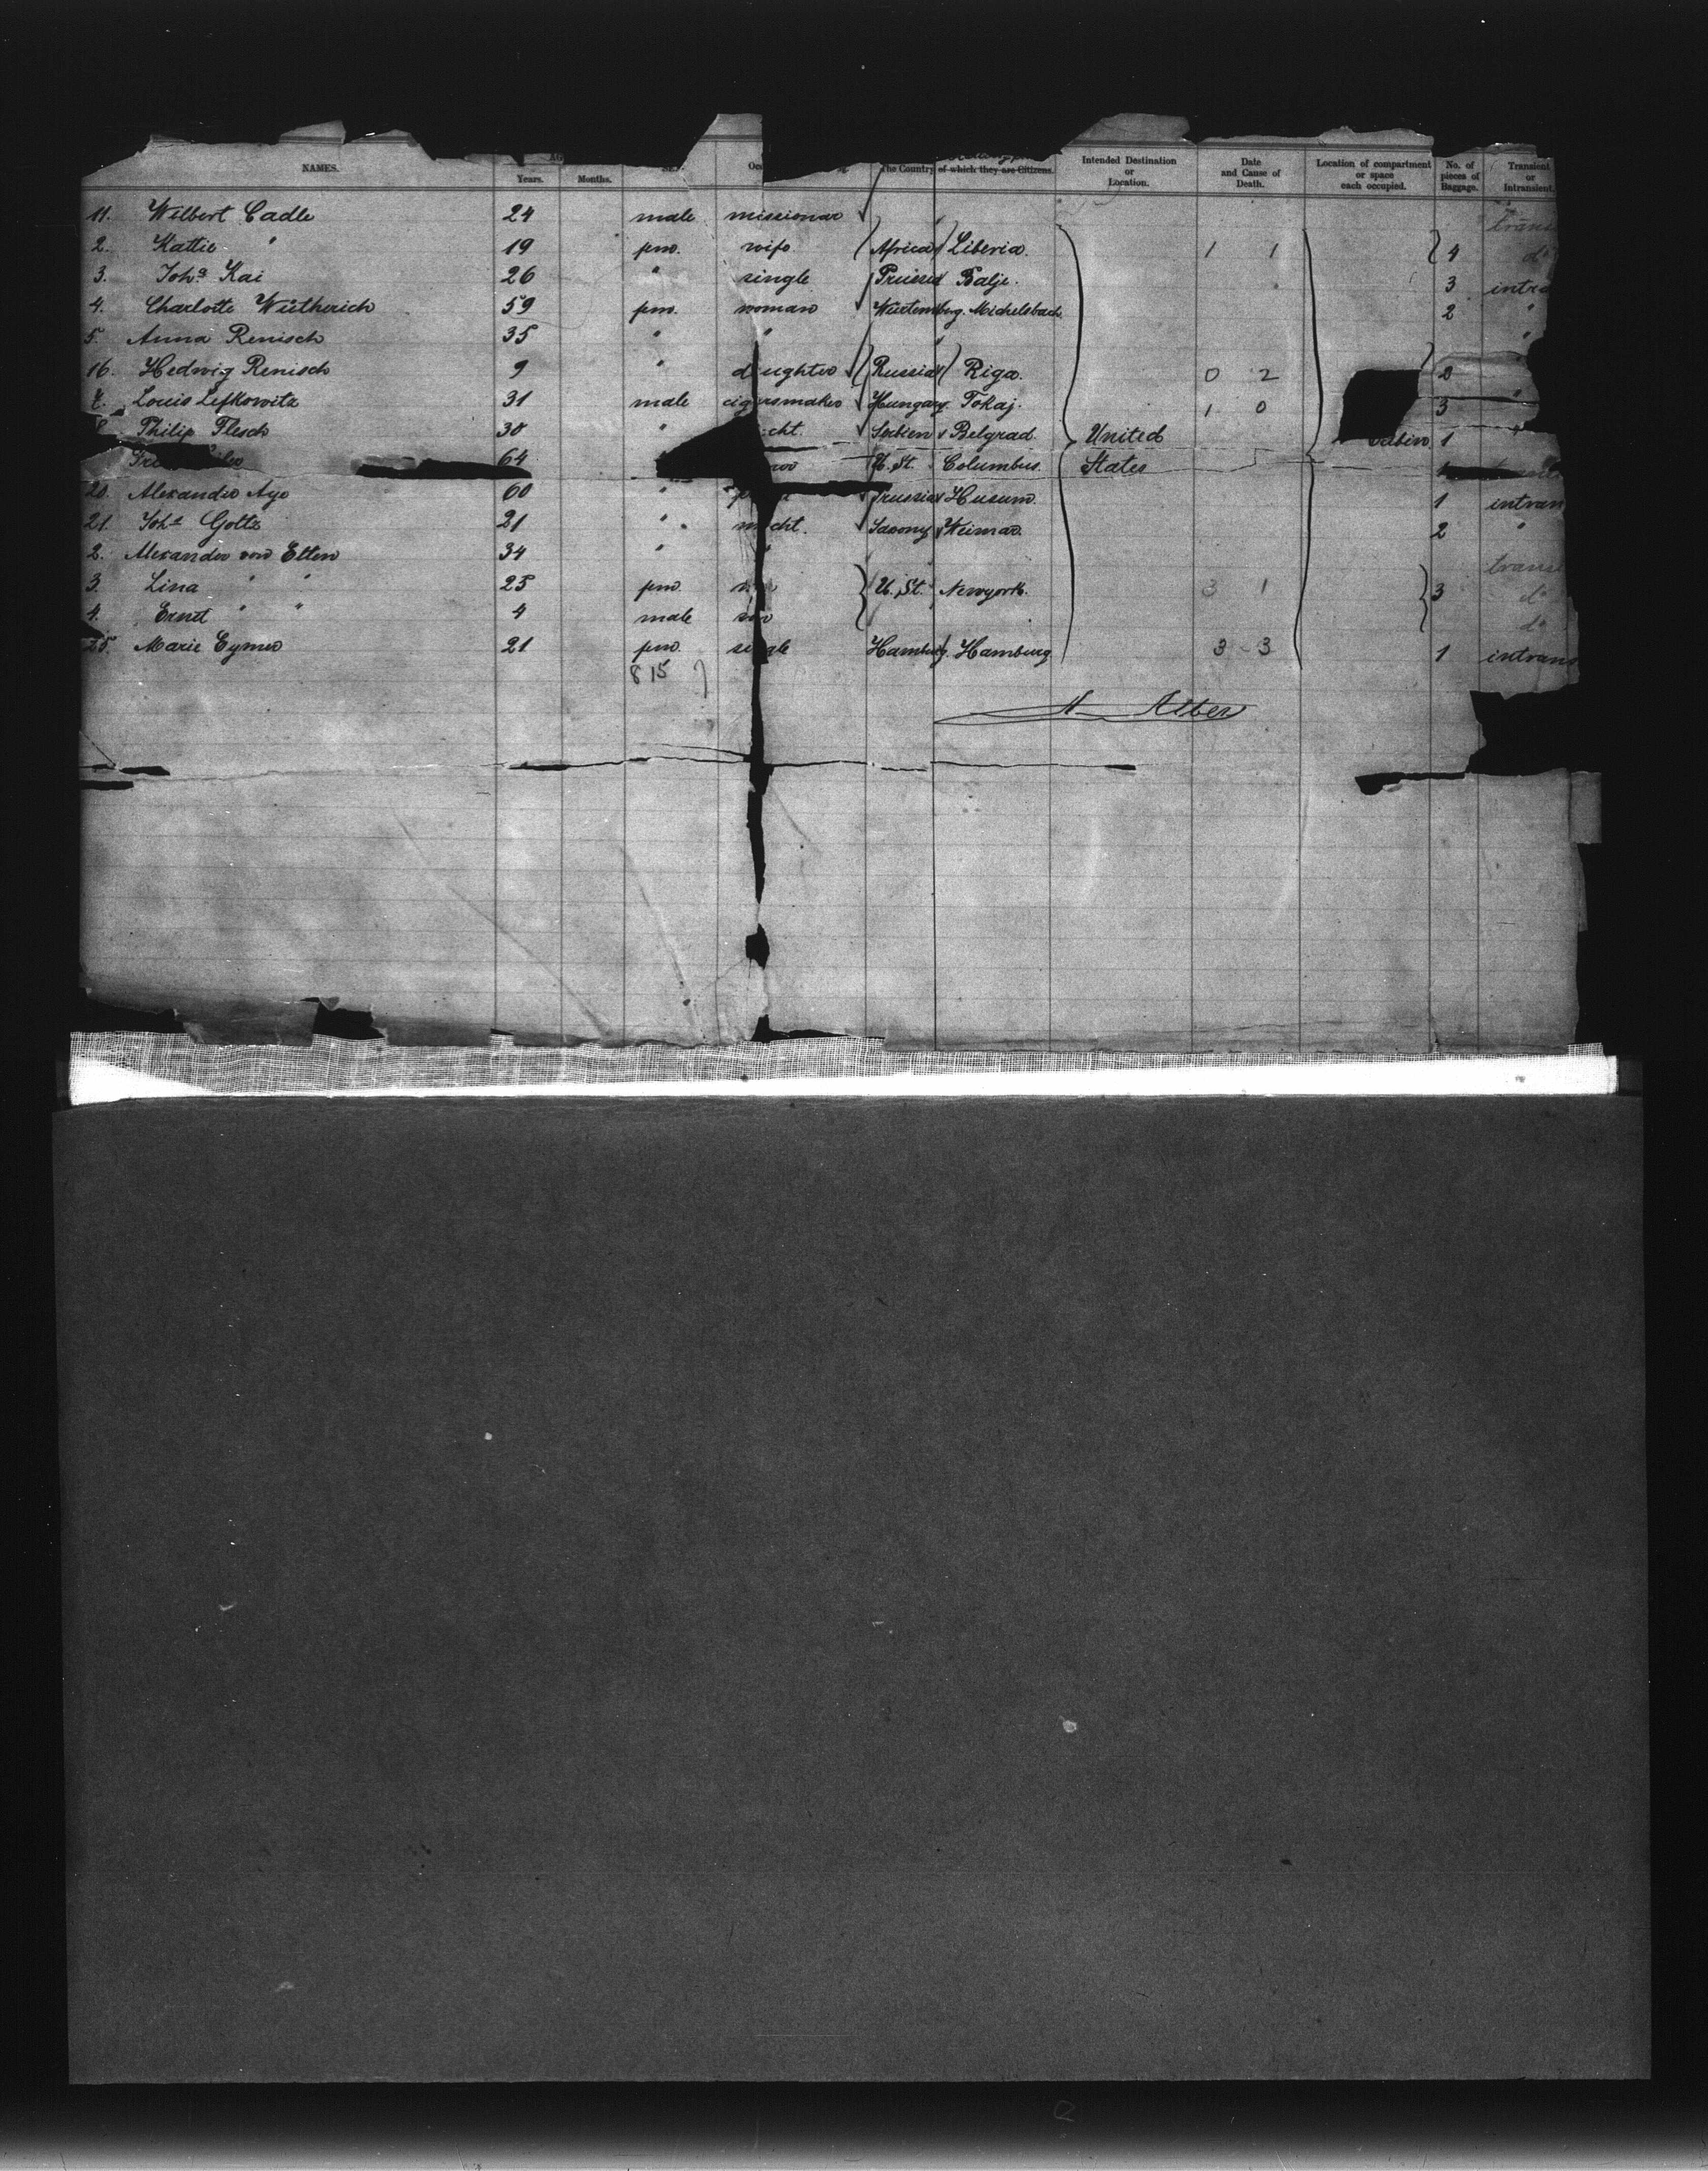 NAMES. Years. Months. The Country of which they are Citizens. Intended Destination or Location. Date and Cause of Death. Location of compartment or space each occupied. No. of pieces of Baggage. Transient or Intransient.
11. Wilbert Cadle 24 male missionar
2. Kattie " 19 fem. wife Africa Liberia. 1 1 4 do
3. Johs Kai 26 " single Prussia Balje. 3
4. Charlotte Wütherich 59 fem. woman Würtemberg. Michelsbach 2 "
5. Anna Renisch 35 " " "
16. Hedwig Renisch 9 " daughter Russia Riga. 0 2
7. Louis Lefkowitz 31 male cigarsmaker Hungary. Tokaj. 1 0 3 "
8. Philip Flesch 30 " cht. Serbien Belgrad. United Cabin 1
64 U. St. Columbus. States
20. Alexander Aye 60 " Prussia Husum. 1 intran
21. Johs Goltz 21 " cht. Saxony Weimar. 2 "
2. Alexander von Elten 34 " trans
3. Lina " " 25 fem. U. St. Newyork. 3 1 3 do
4. Ernst " " 4 male do
25. Marie Eymer 21 fem. single Hamburg. Hamburg 3 - 3 1 intrans
8 15
Alber